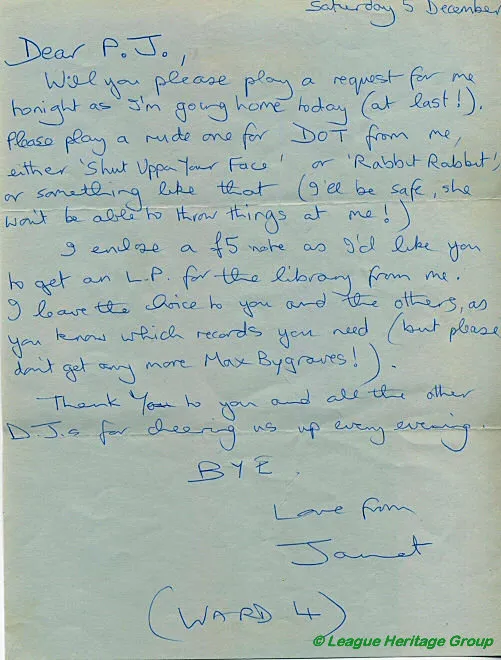 Saturday 5 December
Dear P.J.,
Will you please play a request for me
tonight as I'm going home today (at last!).
Please play a rude one for DOT from me,
either 'Shut Uppa Your Face' or 'Rabbit Rabbit',
or something like that (I'll be safe, she
won't be able to throw things at me!)
I enclose a £5 note as I'd like you
to get an L.P. for the library from me.
I leave the choice to you and the others, as
you know which records you need (but please
don't get any more Max Bygraves!).
Thank You to you and all the other
D.J.s for cheering us up every evening.
BYE.
Love from
Janet
(WARD 4)
© League Heritage Group